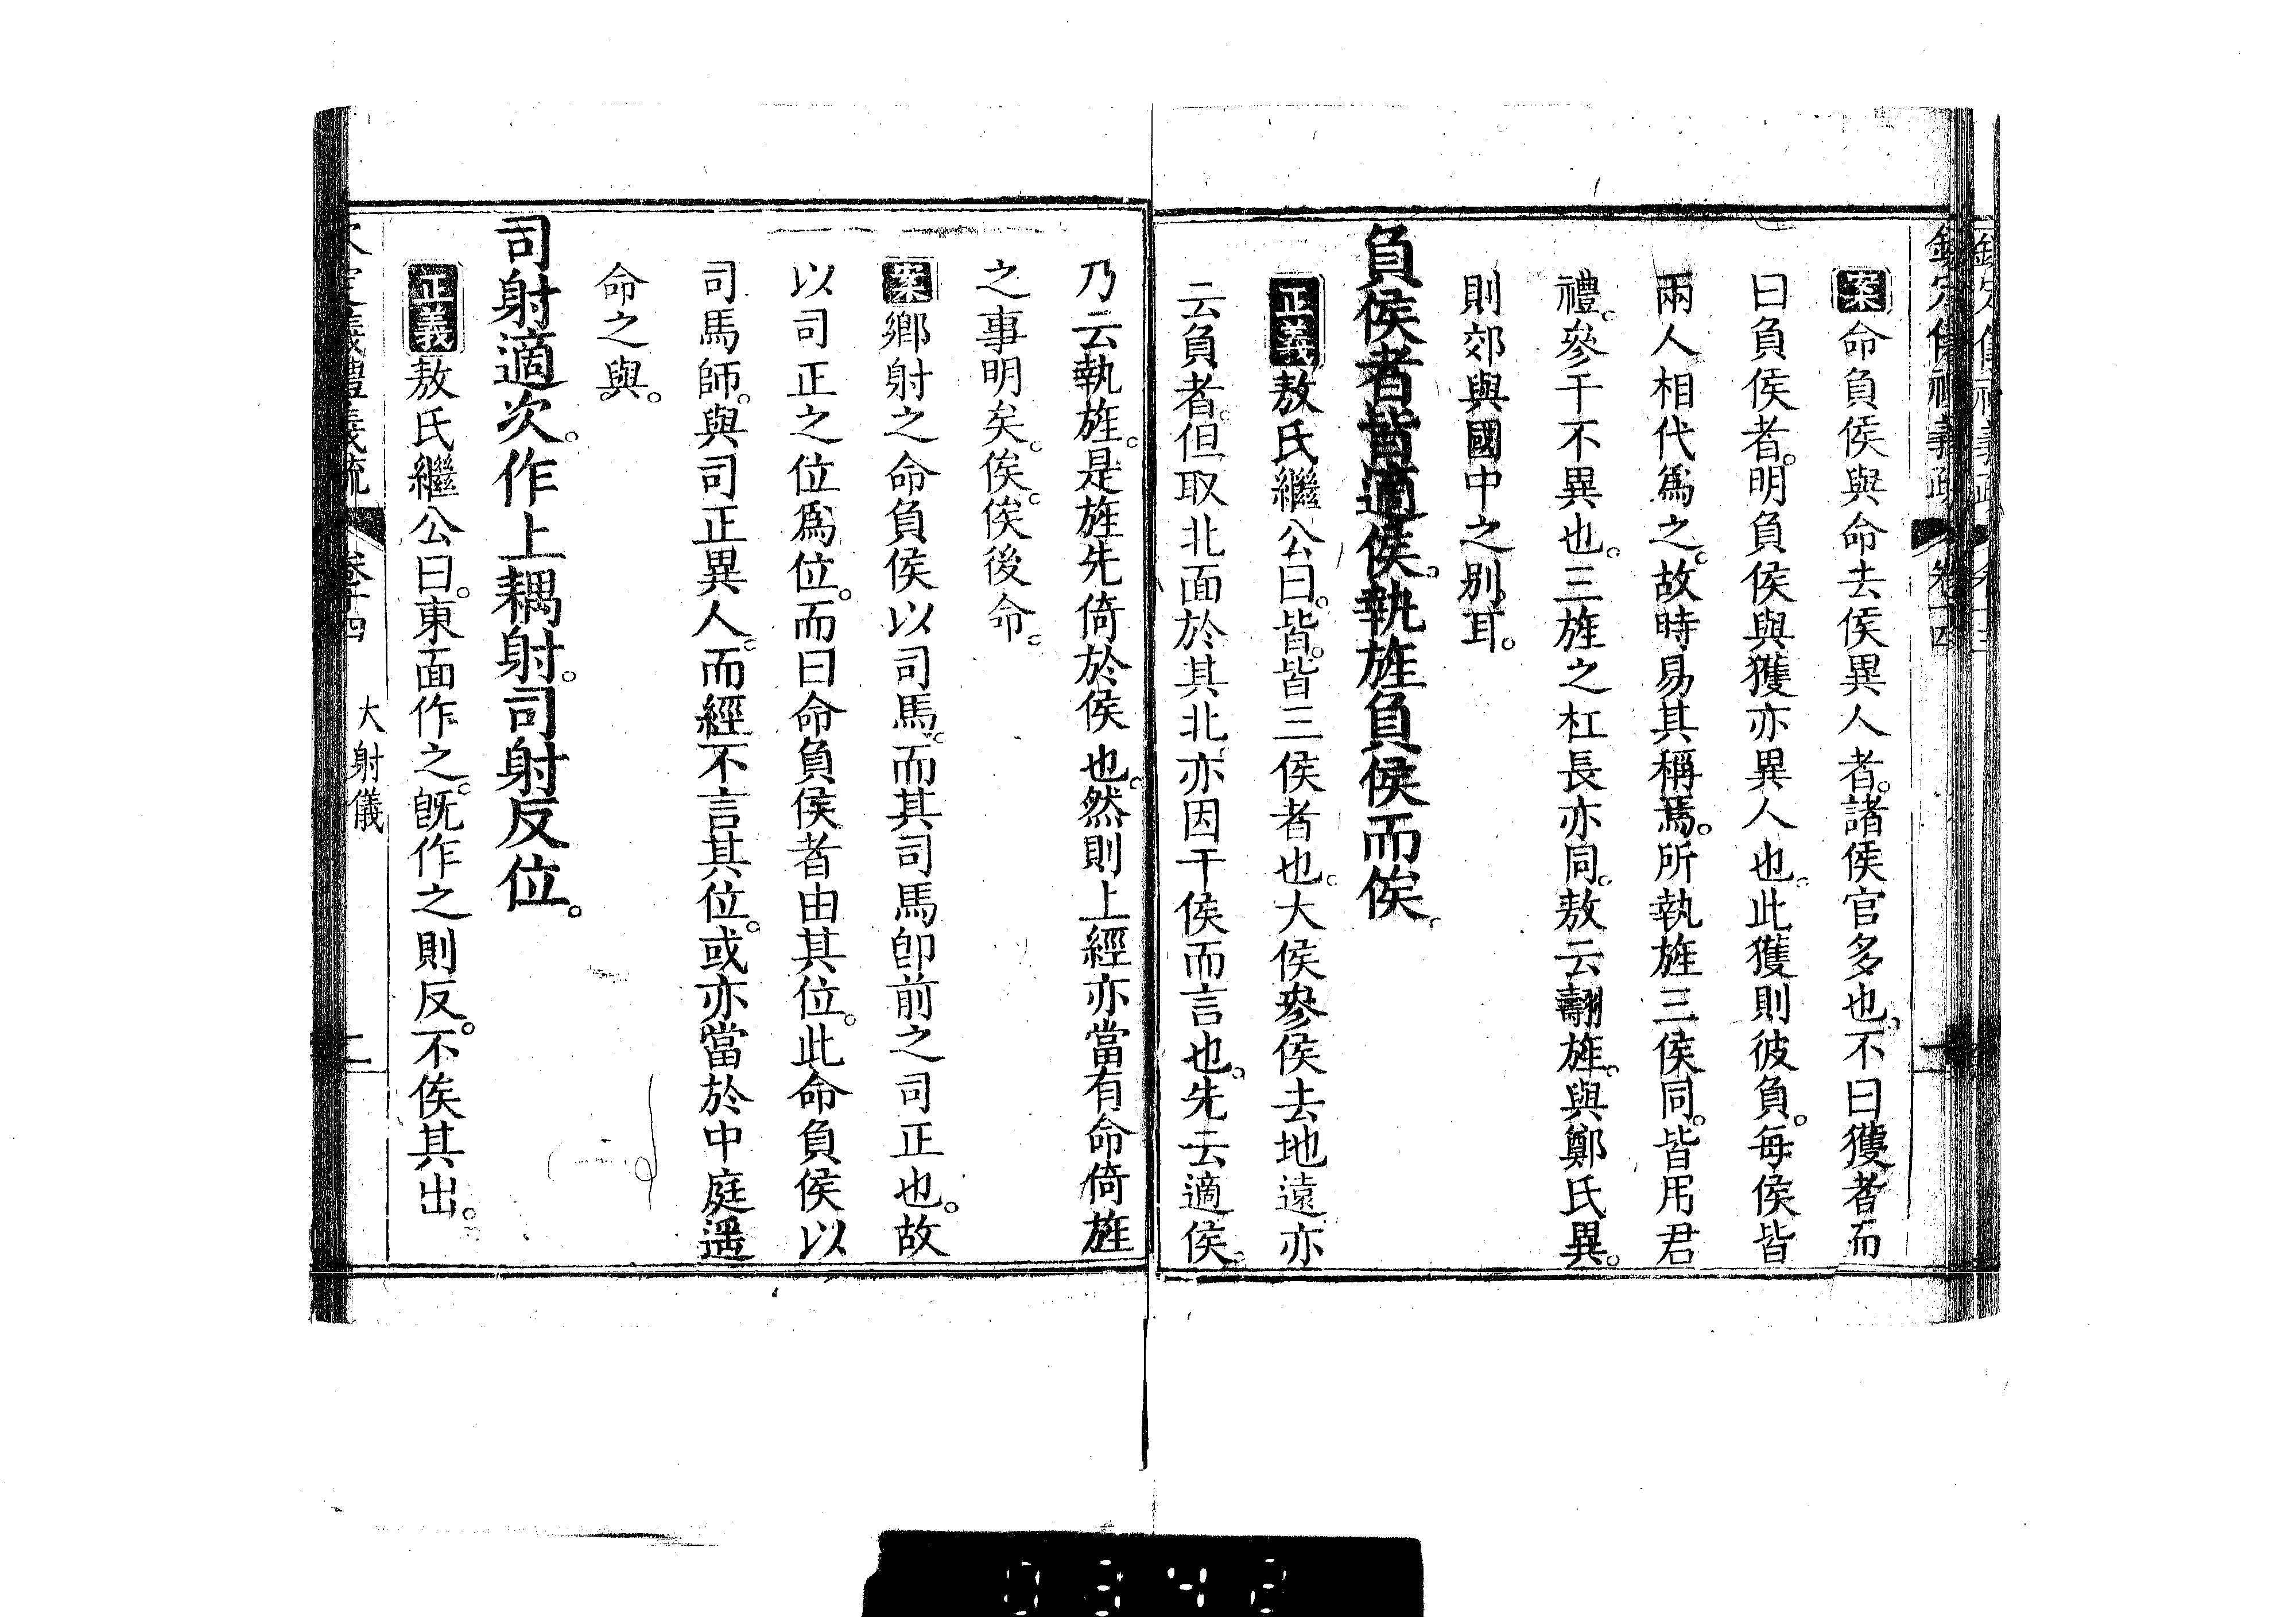 案命負侯與命去侯異人者。諸侯官多也。不曰獲者而
曰負侯者。明負侯與獲亦異人也。此獲則彼負。每侯皆
兩人相代爲之。故時易其稱焉。所執旌三侯同。皆用君
禮。參干不異也。三旌之杠長亦同。敖云翿旌。與鄭氏異。
則郊與國中之别耳。
負侯者皆適侯。執旌負侯而俟。
正義敖氏繼公曰。皆。皆三侯者也。大侯參侯去地遠亦
云負者。但取北面於其北。亦因干侯而言也。先云適侯。
乃云執旌。是旌先倚於侯也。然則上經亦當有命倚旌
之事明矣。俟。俟後命。
案鄉射之命負侯以司馬。而其司馬卽前之司正也。故
以司正之位爲位。而曰命負侯者由其位。此命負侯以
司馬師。與司正異人。而經不言其位。或亦當於中庭遥
命之與。
司射適次。作上耦射。司射反位。
正義敖氏繼公曰。東面作之。旣作之則反。不俟其出。
義禮義疏 卷十四 大射儀 二
0342